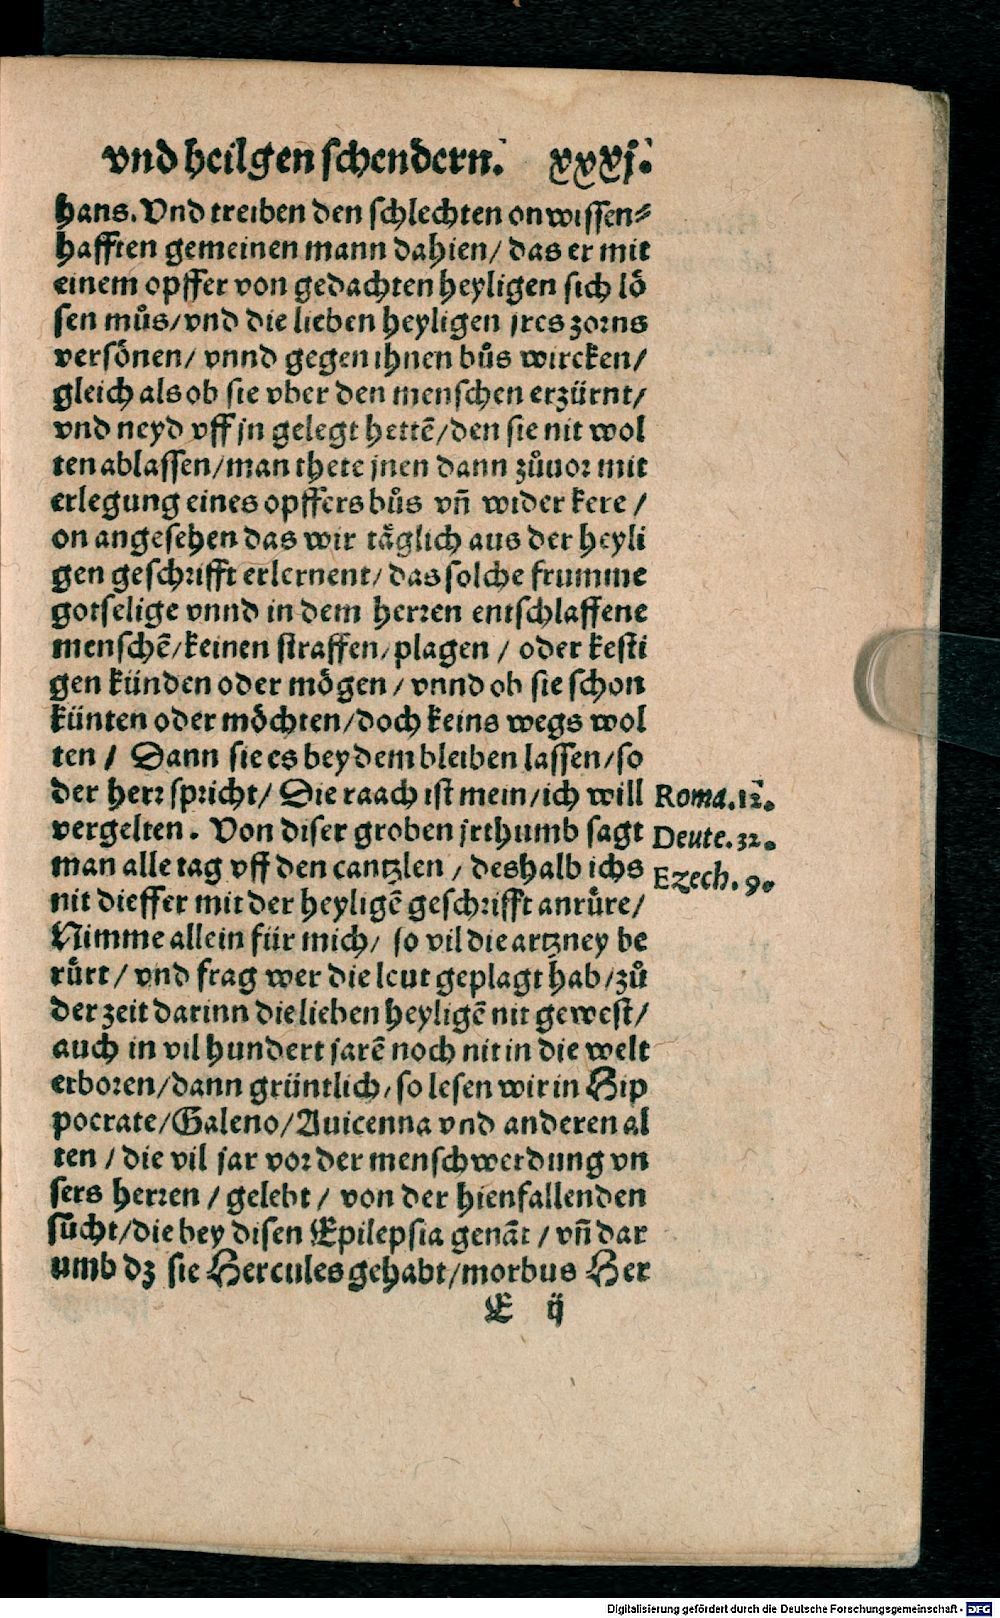 vnd heilgen schendern. xxxj.
hans. Vnd treiben den schlechten onwissen⸗
hafften gemeinen mann dahien/ das er mit
einem opffer von gedachten heyligen sich lö
sen můs/ vnd die lieben heyligen jres zorns
versönen/ vnnd gegen ihnen bůs wircken/
gleich als ob sie vber den menschen erzürnt/
vnd neyd vff jn gelegt hettē/ den sie nit wol
ten ablassen/ man thete jnen dann zůuor mit
erlegung eines opffers bůs vñ wider kere/
on angesehen das wir täglich aus der heyli
gen geschrifft erlernent/ das solche frumme
gotselige vnnd in dem herren entschlaffene
menschē/ keinen straffen/ plagen/ oder kesti
gen künden oder mögen/ vnnd ob sie schon
künten oder möchten/ doch keins wegs wol
ten/ Dann sie es bey dem bleiben lassen/ so
der herr spricht/ Die raach ist mein/ ich will
Roma.12.
vergelten. Von diser groben jrthumb sagt
Deute.32.
man alle tag vff den cantzlen/ deshalb ichs
Ezech.9.
nit dieffer mit der heyligē geschrifft anrüre/
Nimme allein für mich/ so vil die artzney be
rürt/ vnd frag wer die leut geplagt hab/ zů
der zeit darinn die lieben heyligē nit gewest/
auch in vil hundert jarē noch nit in die welt
erboren/ dann grüntlich/ so lesen wir in Hip
pocrate/ Galeno/ Auicenna vnd anderen al
ten/ die vil jar vor der menschwerdung vn
sers herren/ gelebt/ von der hienfallenden
sücht/ die bey disen Epilepsia genāt/ vñ dar
umb dz sie Hercules gehabt/ morbus Her
E ij
Digitalisierung gefördert durch die Deutsche Forschungsgemeinschaft - DFG